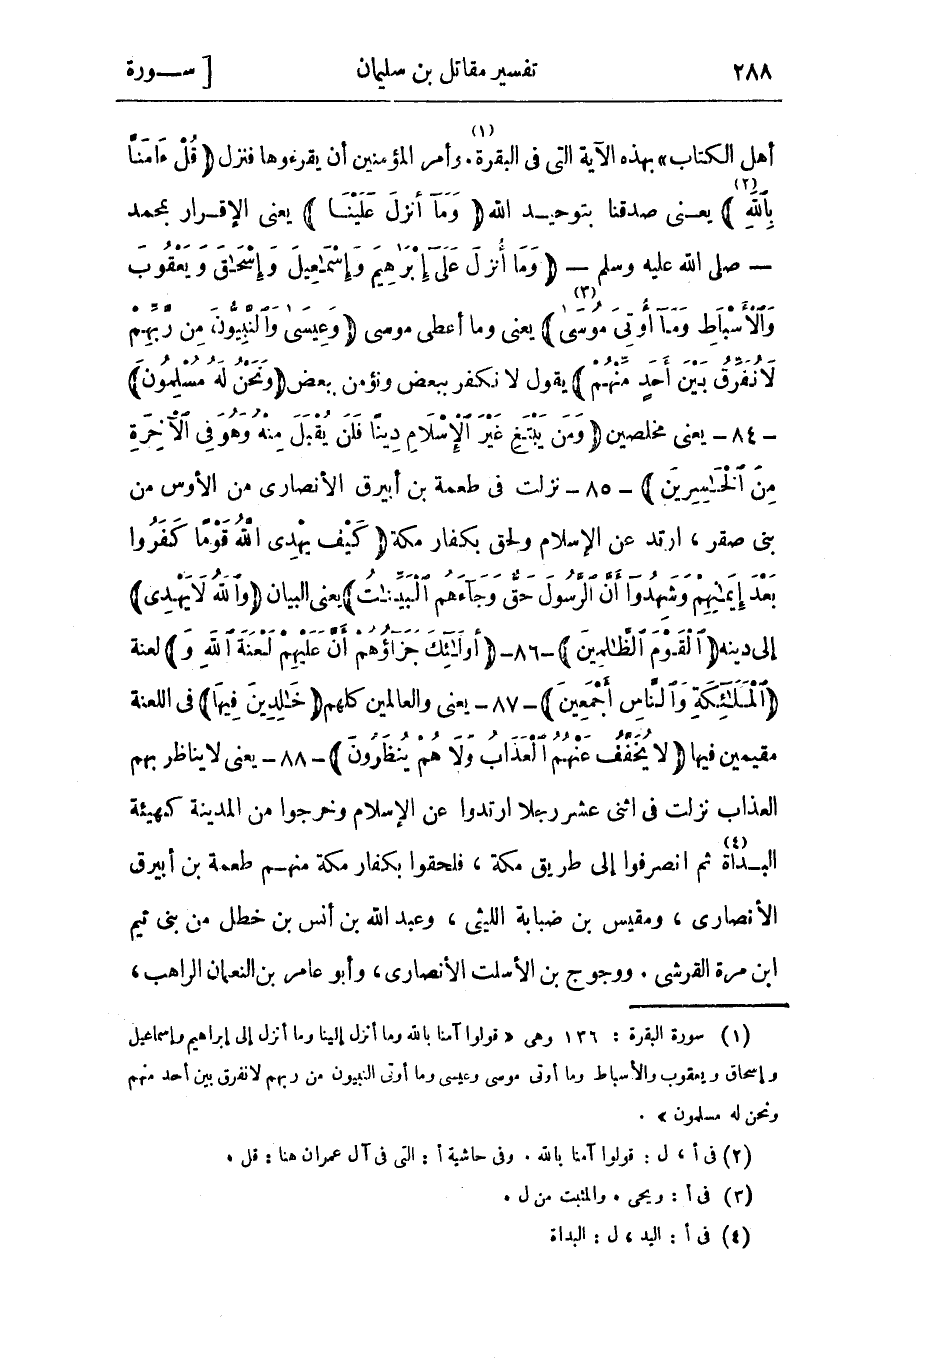 ٢٨٨ تفسير مقاتل بن سليمان [ ســورة
أهل الكتاب» بهذه الآية التى فى البقرة(١). وأمر المؤمنين أن يقرءوها فنزل ﴿ قُلْ ءَامَنَّا
بِاللَّهِ ﴾(٢) يعــنى صدقنا بتوحيــد الله ﴿ وَمَآ أُنزِلَ عَلَيْنَــا ﴾ يعنى الإقــرار بمحمد
— صلى الله عليه وسلم — ﴿ وَمَا أُنزِلَ عَلَىٰٓ إِبْرَاهِيمَ وَإِسْمَاعِيلَ وَإِسْحَاقَ وَيَعْقُوبَ
وَالْأَسْبَاطِ وَمَآ أُوتِىَ مُوسَىٰ(٣) ﴾ يعنى وما أعطى موسى ﴿ وَعِيسَىٰ وَالنَّبِيُّونَ مِن رَّبِّهِمْ
لَا نُفَرِّقُ بَيْنَ أَحَدٍ مِّنْهُمْ ﴾ يقول لا نكفر ببعض ونؤمن ببعض ﴿ وَنَحْنُ لَهُ مُسْلِمُونَ ﴾
- ٨٤ - يعنى مخلصين ﴿ وَمَن يَبْتَغِ غَيْرَ الْإِسْلَامِ دِينًا فَلَن يُقْبَلَ مِنْهُ وَهُوَ فِى الْآخِرَةِ
مِنَ الْخَاسِرِينَ ﴾ - ٨٥ - نزلت فى طعمة بن أبيرق الأنصارى من الأوس من
بنى صقر ، ارتد عن الإسلام ولحق بكفار مكة ﴿ كَيْفَ يَهْدِى اللَّهُ قَوْمًا كَفَرُوا
بَعْدَ إِيمَانِهِمْ وَشَهِدُوٓا أَنَّ الرَّسُولَ حَقٌّ وَجَآءَهُمُ الْبَيِّنَاتُ ﴾ يعنى البيان ﴿ وَاللَّهُ لَا يَهْدِى ﴾
إلى دينه ﴿ الْقَوْمَ الظَّالِمِينَ ﴾ - ٨٦ - ﴿ أُولَآئِكَ جَزَآؤُهُمْ أَنَّ عَلَيْهِمْ لَعْنَةَ اللَّهِ وَ ﴾ لعنة
﴿ الْمَلَآئِكَةِ وَالنَّاسِ أَجْمَعِينَ ﴾ - ٨٧ - يعنى والعالمين كلهم ﴿ خَالِدِينَ فِيهَا ﴾ فى اللعنة
مقيمين فيها ﴿ لَا يُخَفَّفُ عَنْهُمُ الْعَذَابُ وَلَا هُمْ يُنظَرُونَ ﴾ - ٨٨ - يعنى لا يناظر بهم
العذاب نزلت فى اثنى عشر رجلا ارتدوا عن الإسلام وخرجوا من المدينة كهيئة
البــداة(٤) ثم انصرفوا إلى طريق مكة ، فلحقوا بكفار مكة منهــم طعمة بن أبيرق
الأنصارى ، ومقيس بن ضبابة الليثى ، وعبد الله بن أنس بن خطل من بنى تيم
ابن مرة القرشى . ووجوج بن الأسلت الأنصارى ، وأبو عامر بن النعمان الراهب ،
(١) سورة البقرة : ١٣٦ وهى « قولوا آمنا بالله وما أنزل إلينا وما أنزل إلى إبراهيم وإسماعيل
وإسحاق ويعقوب والأسباط وما أوتى موسى وعيسى وما أوتى النبيون من ربهم لا نفرق بين أحد منهم
ونحن له مسلمون » .
(٢) فى أ ، ل : قولوا آمنا بالله . وفى حاشية أ : التى فى آل عمران هنا : قل .
(٣) فى أ : ويحى . والمثبت من ل .
(٤) فى أ : اليد ، ل : البداة